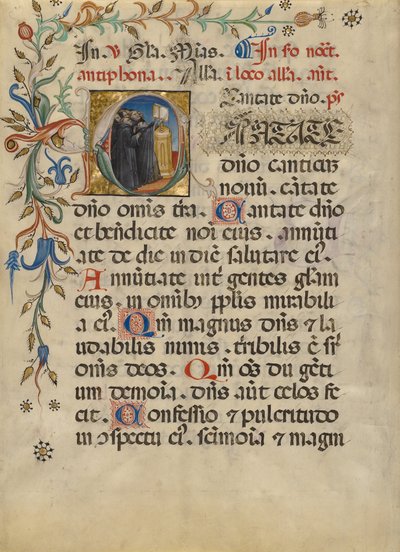 antiphona.. Alla. ĩ loco alla. añt.
Cantate dño. ps
CANTATE
dño canticũ
nouũ. cãtate
dño omĩs tr̃a. Cantate dño
et bñdicite noĩ eius. annũti
ate de die in diẽ salutare ei᷒.
Annũtiate int̃ gentes glam̃
eius. in omĩbꝫ pplĩs mirabili
a ei᷒. Qm̃ magnus dñs ⁊ la
udabilis nimis. tr̃ribilis ẽ
omĩs deos. Qm̃ dii gẽti
um demoĩa. dñs aũt celos fe
cit. Confessio ⁊ pulcritudo
in ↄspectu ei᷒. scĩmoĩa ⁊ magni